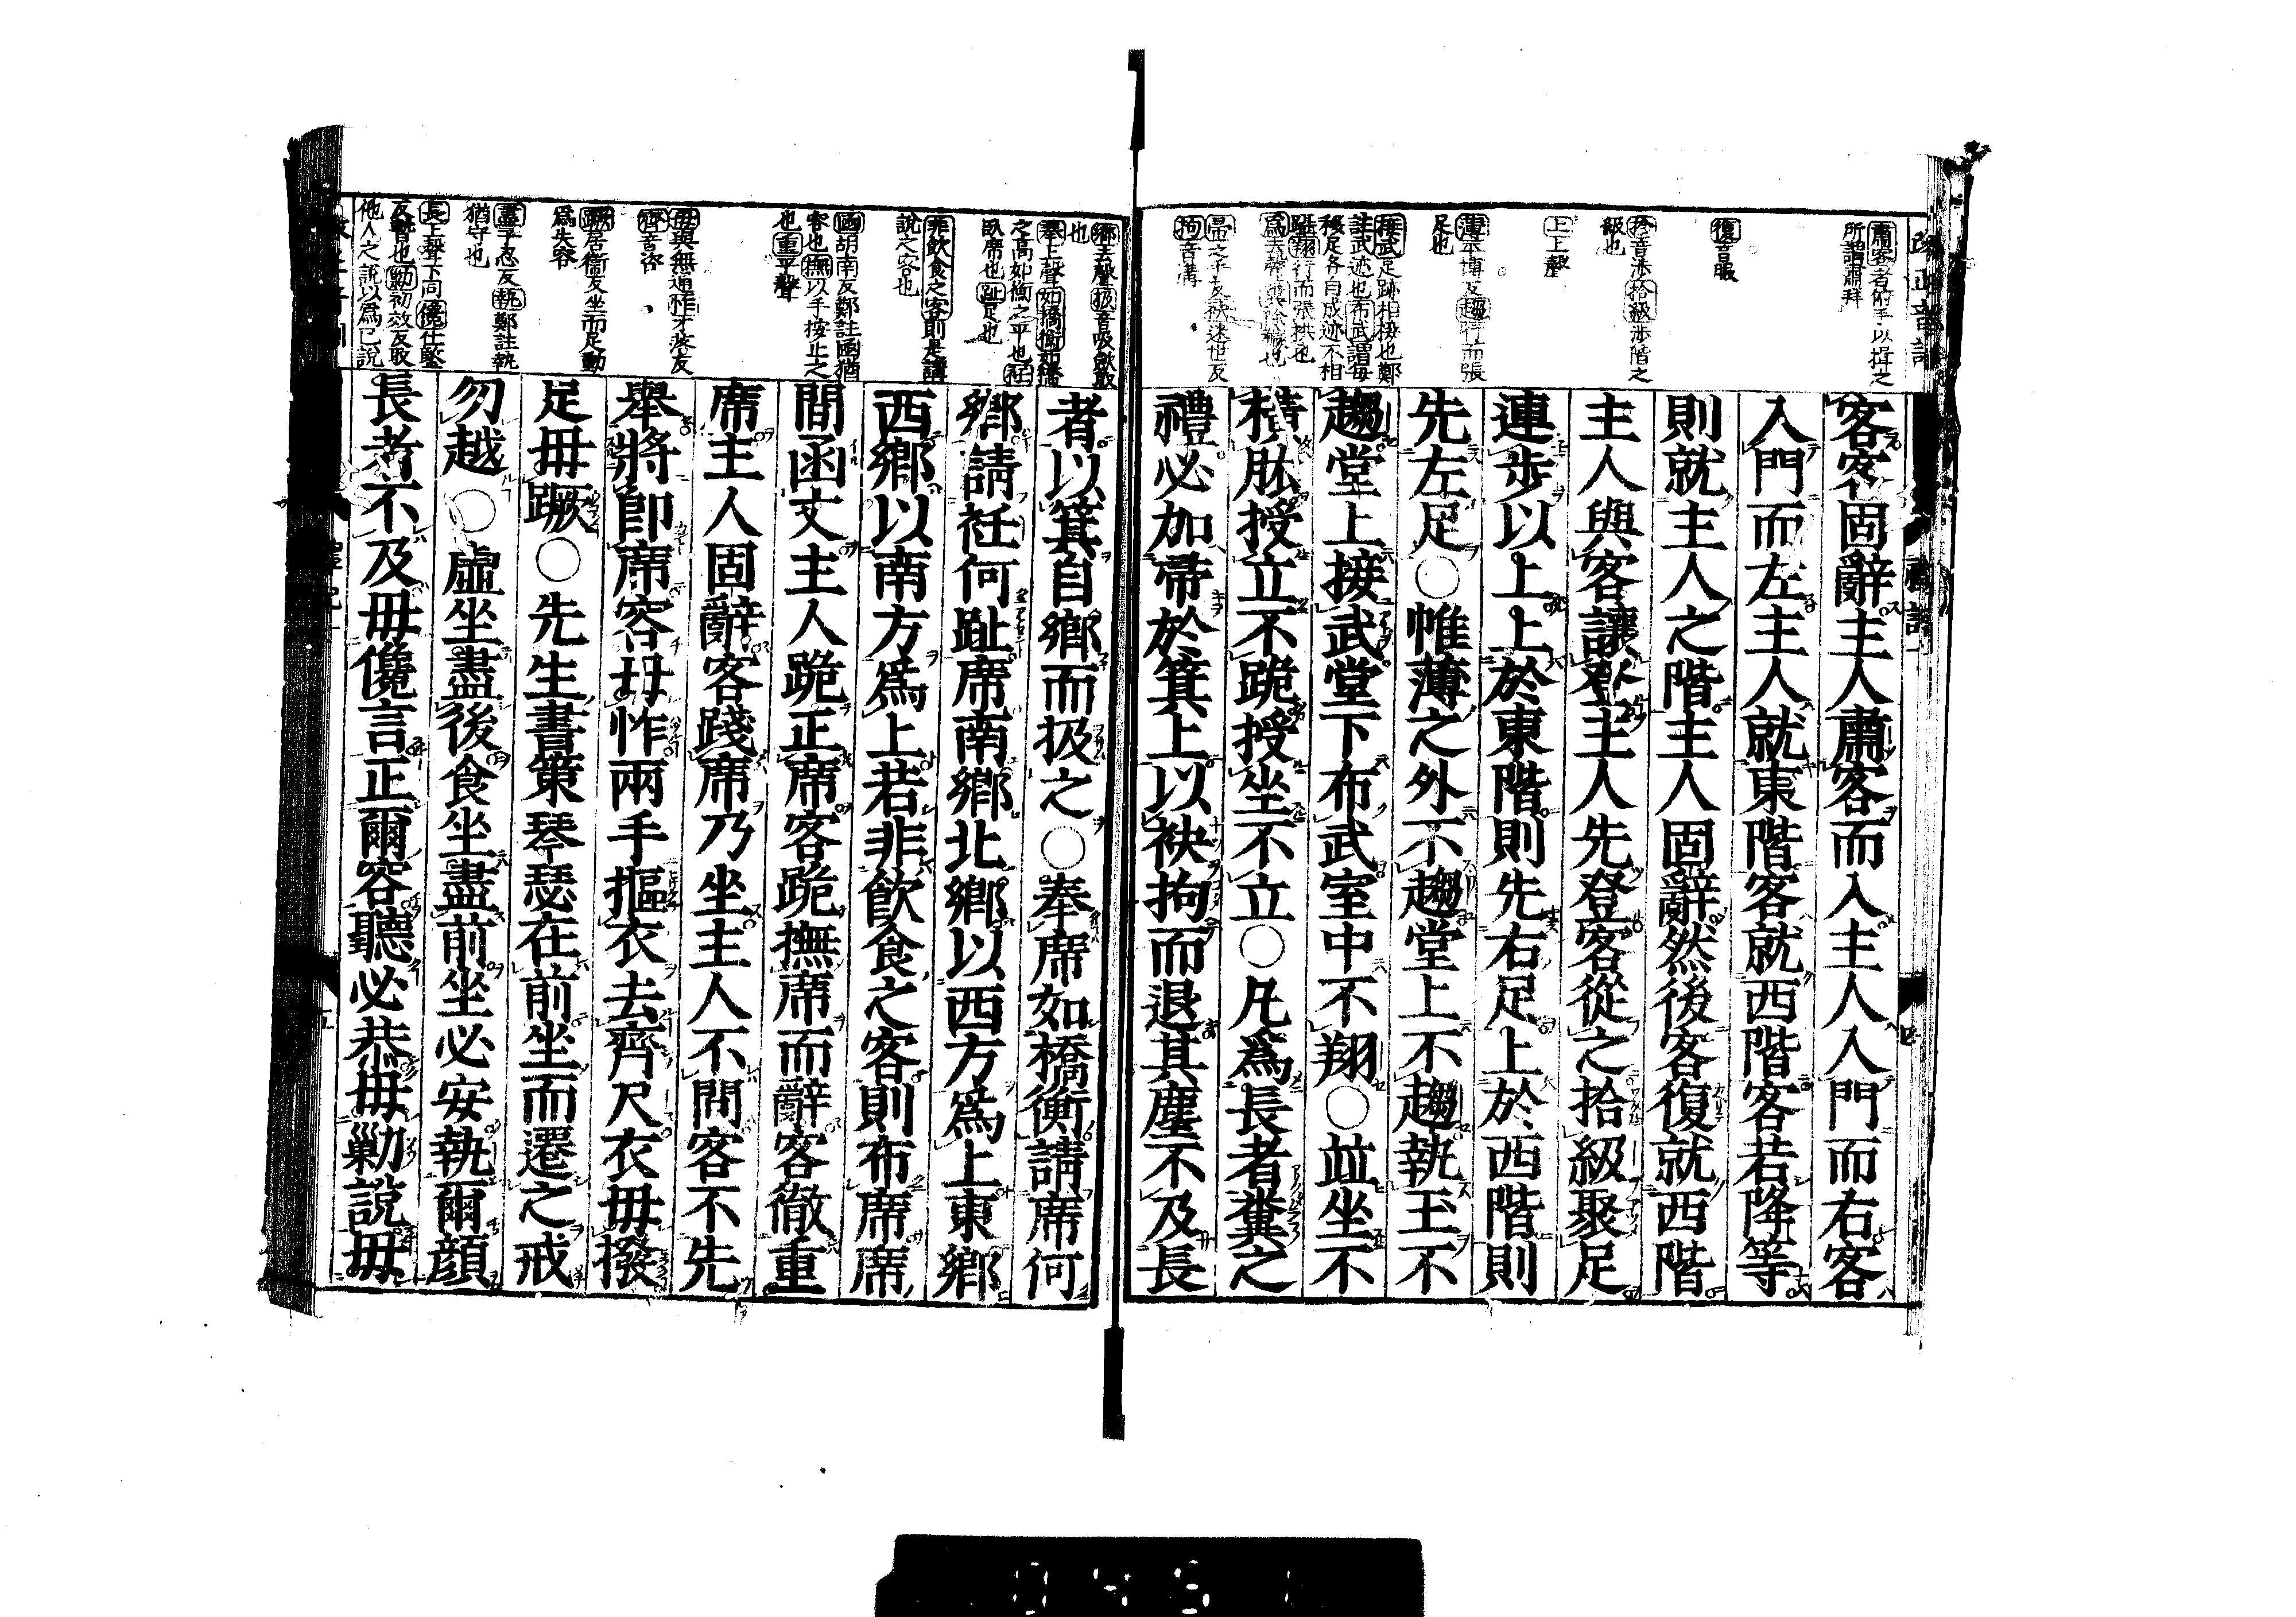 客客固辭主人肅客而入主人入門而右客
入門而左主人就東階客就西階客若降等
則就主人之階主人固辭然後客復就西階
主人與客讓登主人先登客從之拾級聚足
連步以上上於東階則先右足上於西階則
先左足○帷薄之外不趨堂上不趨執玉不
趨堂上接武堂下布武室中不翔○竝坐不
橫肱授立不跪授坐不立○凡爲長者糞之
禮必加帚於箕上以袂拘而退其塵不及長
者以箕自鄉而扱之○奉席如橋衡請席何
鄉請衽何趾席南鄉北鄉以西方爲上東鄉
西鄉以南方爲上若非飲食之客則布席席
間函丈主人跪正席客跪撫席而辭客徹重
席主人固辭客踐席乃坐主人不問客不先
舉將卽席容毋怍兩手摳衣去齊尺衣毋撥
足毋蹶○先生書策琴瑟在前坐而遷之戒
勿越○虛坐盡後食坐盡前坐必安執爾顏
長者不及毋儳言正爾容聽必恭毋勦說毋
肅客者俯手以揖之
所謂肅拜
復音服
拾音涉拾級涉階之
級也
上上聲
薄平博反趨行而張
足也
接武足跡相接也鄭
註武迹也布武謂每
移足各自成迹不相
躡翔行而張拱也
拘音溝
鄉去聲扱音吸斂取
也
奉上聲如橋衡如橋
之高如衡之平也衽
臥席也趾足也
非飲食之客則是講
說之客也
函胡南反鄭註函猶
容也撫以手按止之
也重平聲
毋與無通怍才洛反
齊音咨
蹶居衞反坐而足動
爲失容
盡子忍反執鄭註執
猶守也
長上聲下同儳仕鑒
反暫也勦初效反取
他人之說以爲己說